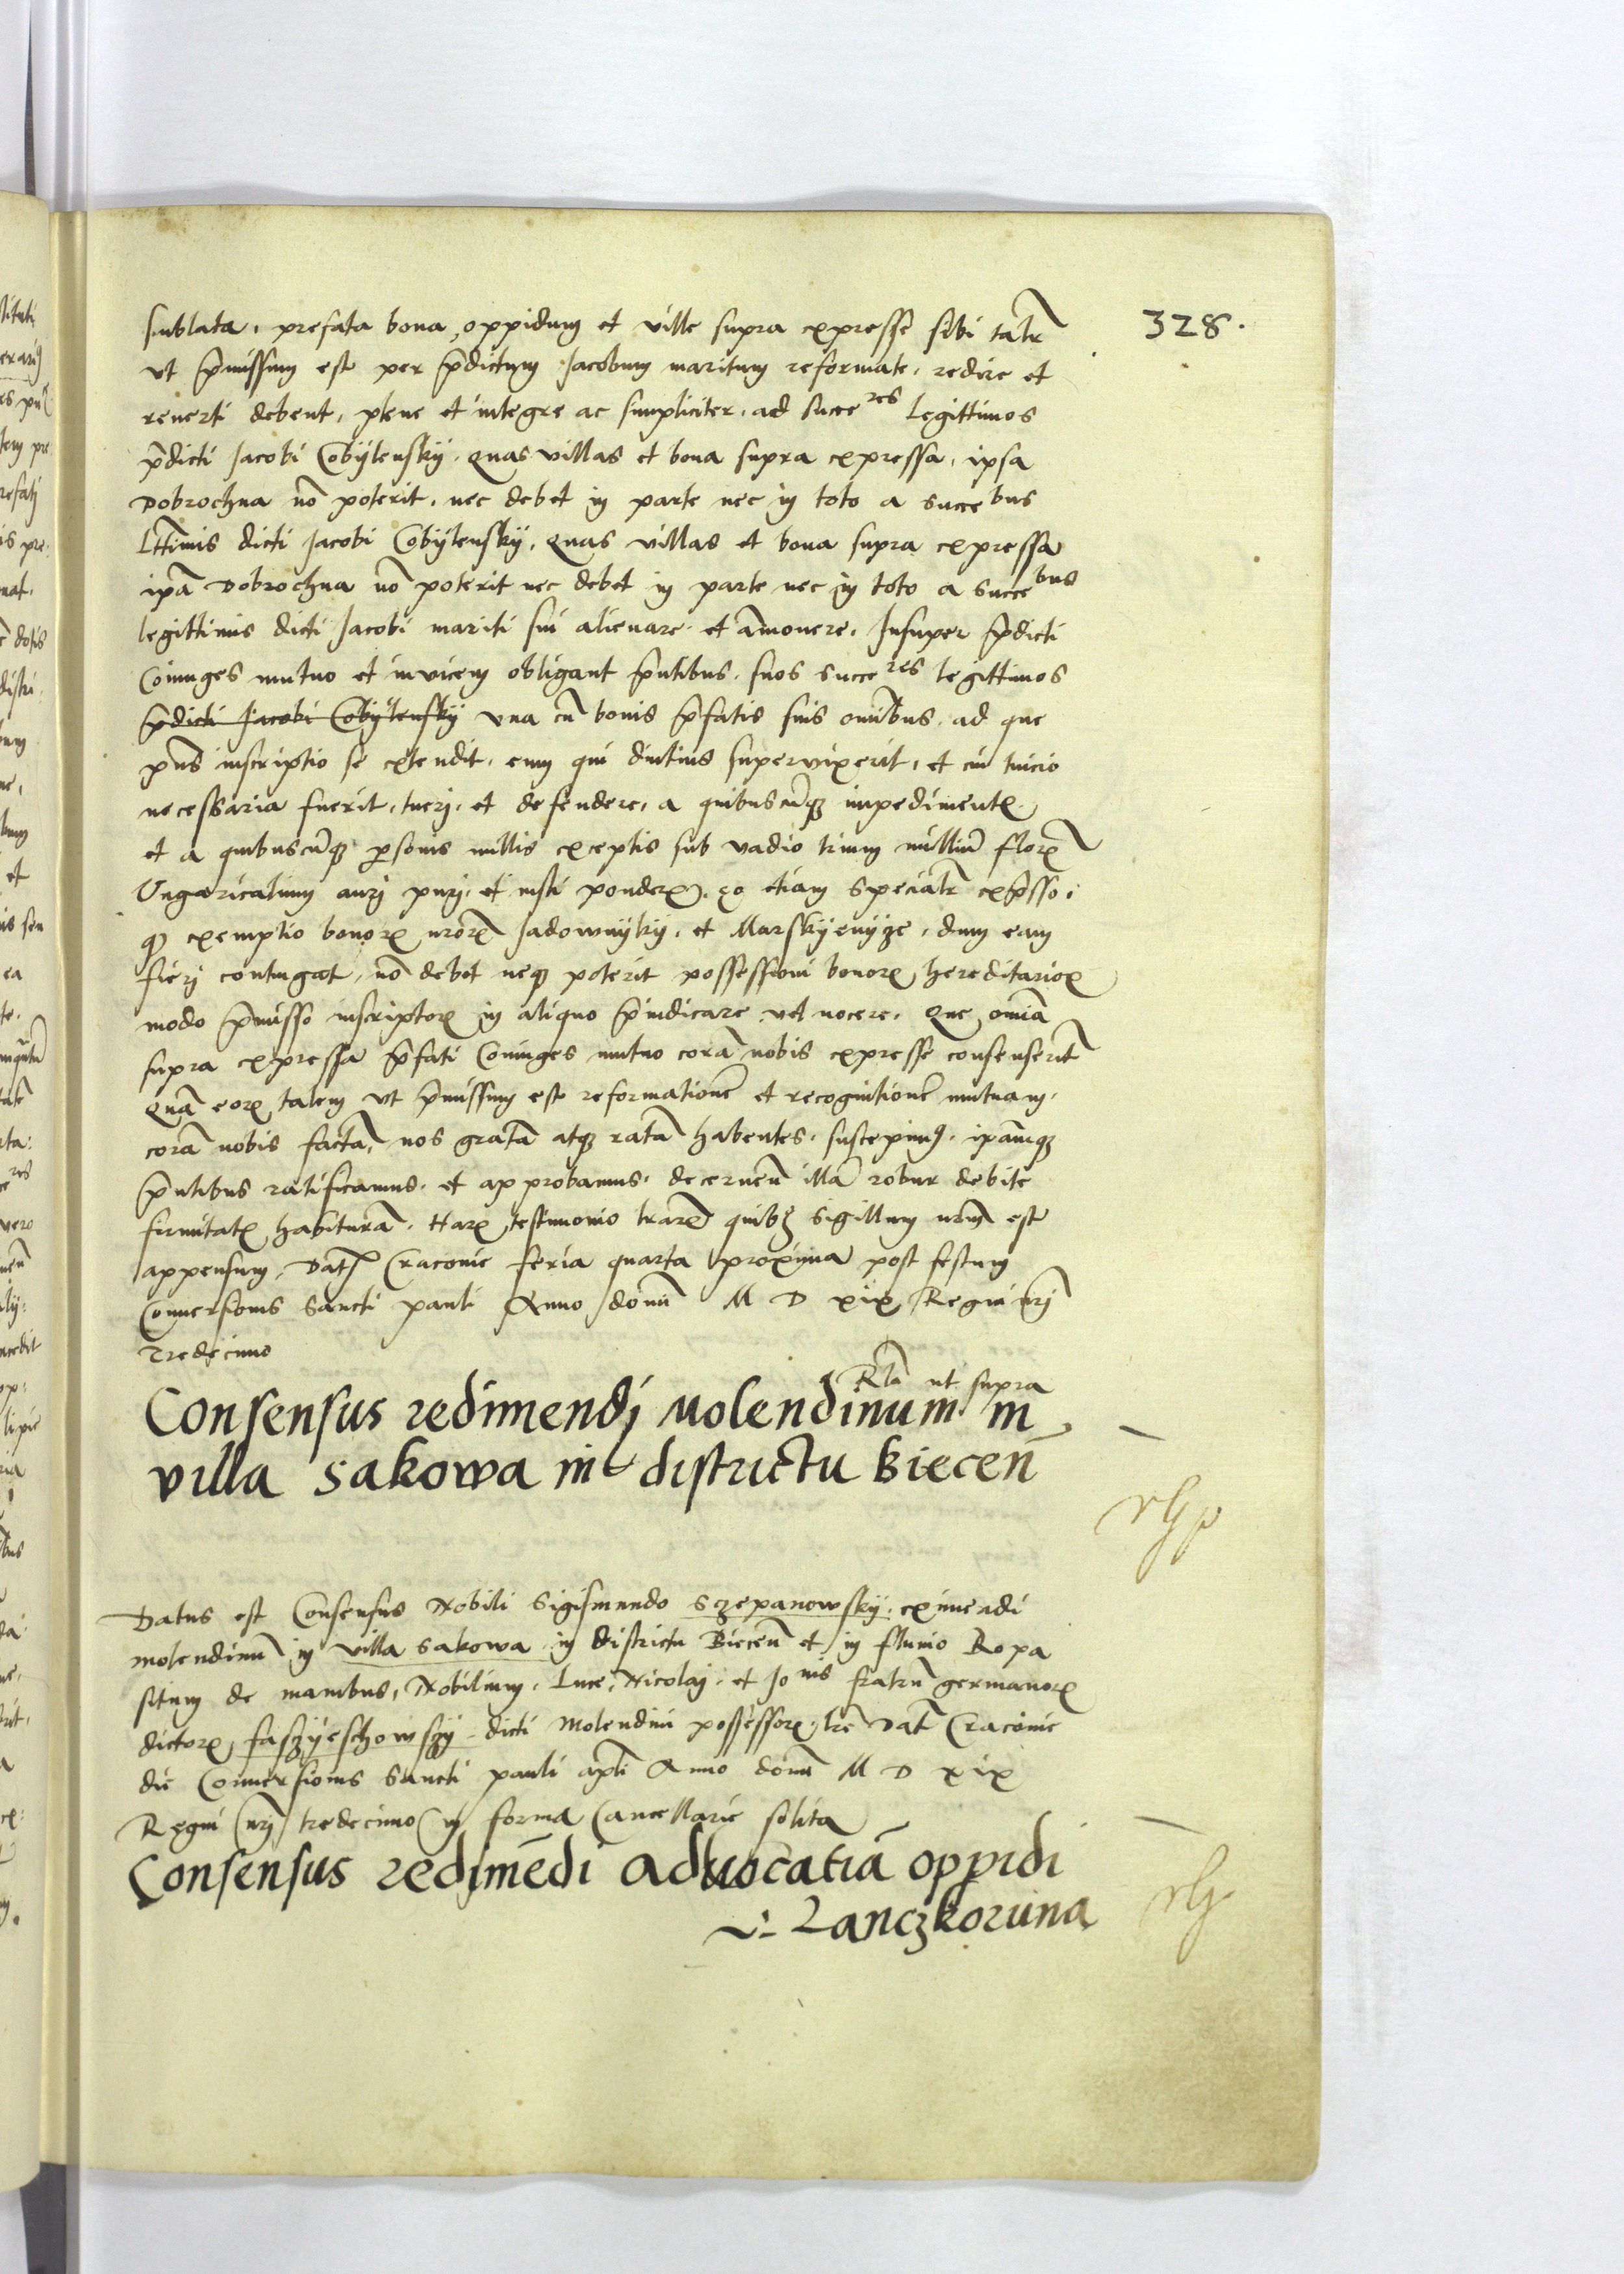 328.
sublata, prefata bona, oppidum et ville supra expresse sibi talr̃
vt p̃missum est per p̃dictum Jacobum maritum reformate, redire et
reuerti debent, plene et integre ac simpliciter, ad succeres legittimos
p̃dicti Jacobi Cobÿlenskÿ. Quas villas et bona supra expressa, ipsa
Dobrochna nõ poterit, nec debet in parte nec in toto a succebus
Lttimis dicti Jacobi Cobÿlenskÿ, Quas villas et bona supra expressa
ipã Dobrochna nõ poterit nec debet in parte nec in toto a succebus
legittimis dicti Jacobi mariti sui alienare et amouere. Insuper p̃dicti
Coniuges mutuo et inuicem obligant p̃ntibus, suos succeres legittimos
p̃dicti Jacobi Cobÿlenskÿ vna cũ bonis p̃fatis suis om̃ibus, ad que
pñs inscriptio se extendit, eum qui diutius supervixerit, et cui tuicio
necessaria fuerit, tueri, et defendere, a quibuscũqꝫ impedimentꝭ
et a quibuscũqꝫ ꝑsonis nullis exceptis sub vadio trium milliũ florꝭ
Vngaricalium auri puri, et iusti ponderꝭ. eo etiam specialr̃ exp̃sso,
qꝫ exemptio bonorꝝ nrõrꝝ Jadownÿkÿ, et Marskÿenÿcze, dum eam
fieri contingat, nõ debet neqꝫ poterit possessioni bonorꝝ hereditariorꝝ
modo p̃misso inscriptorꝝ in aliquo p̃iudicare vel nocere. Que om̃ia
supra expressa p̃fati Coniuges mutuo corã nobis expresse consenserũt
Quã eorꝝ talem vt p̃missum est reformationẽ et recognitionẽ mutuam,
corã nobis factã, nos gratã atqꝫ ratã habentes, suscepimꝰ, ipãmqꝫ
p̃ntibus ratificamus, et approbamus, decernen̄ illã robur debite
firmitatꝭ habiturã. Harꝝ testimonio lrarꝝ quibꝫ sigillum nrm̃ est
appensum, Datꝭ Cracouie feria quarta proxima post festum
Conuersionis Sancti pauli Anno domĩ M D xix Regni nrĩ
Tredecimo
Rlã ut supra
Consensus redimendi Molendinum in
villa Sakowa in districtu Biecen̄
Datus est Consensus Nobili Sigismundo Szepanowskÿ, eximendi
molendinũ in villa Sakowa in districtu Biecen̄ et in fluuio Ropa
situm de manibus, Nobilium, Luce, Nicolai, et Jonis fratrũ germanorꝝ
dictorꝝ faszÿeschowszÿ dicti Molendini possessorꝝ, lrẽ Datẽ Cracouie
die Conuersionis Sancti pauli apl̃i Anno domĩ M D xix
Regni nrĩ tredecimo in forma Cancellarie solita
Consensus redimẽdi aduocatiã oppidi
Lanczkoruna